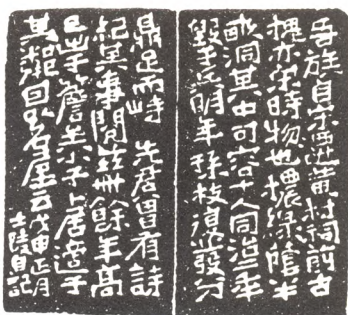 吾族自宋遷黃村祠前古
槐亦宋時物也濃綠蔭半
畝洞其中可容十人同治年
毀明年孫枝復發分
鼎足而峙 先君曾有詩
紀其事閱茲卅餘年高
簷矣小子卜居適于
其鄰因以名屋云 戊申正月
士陵自記